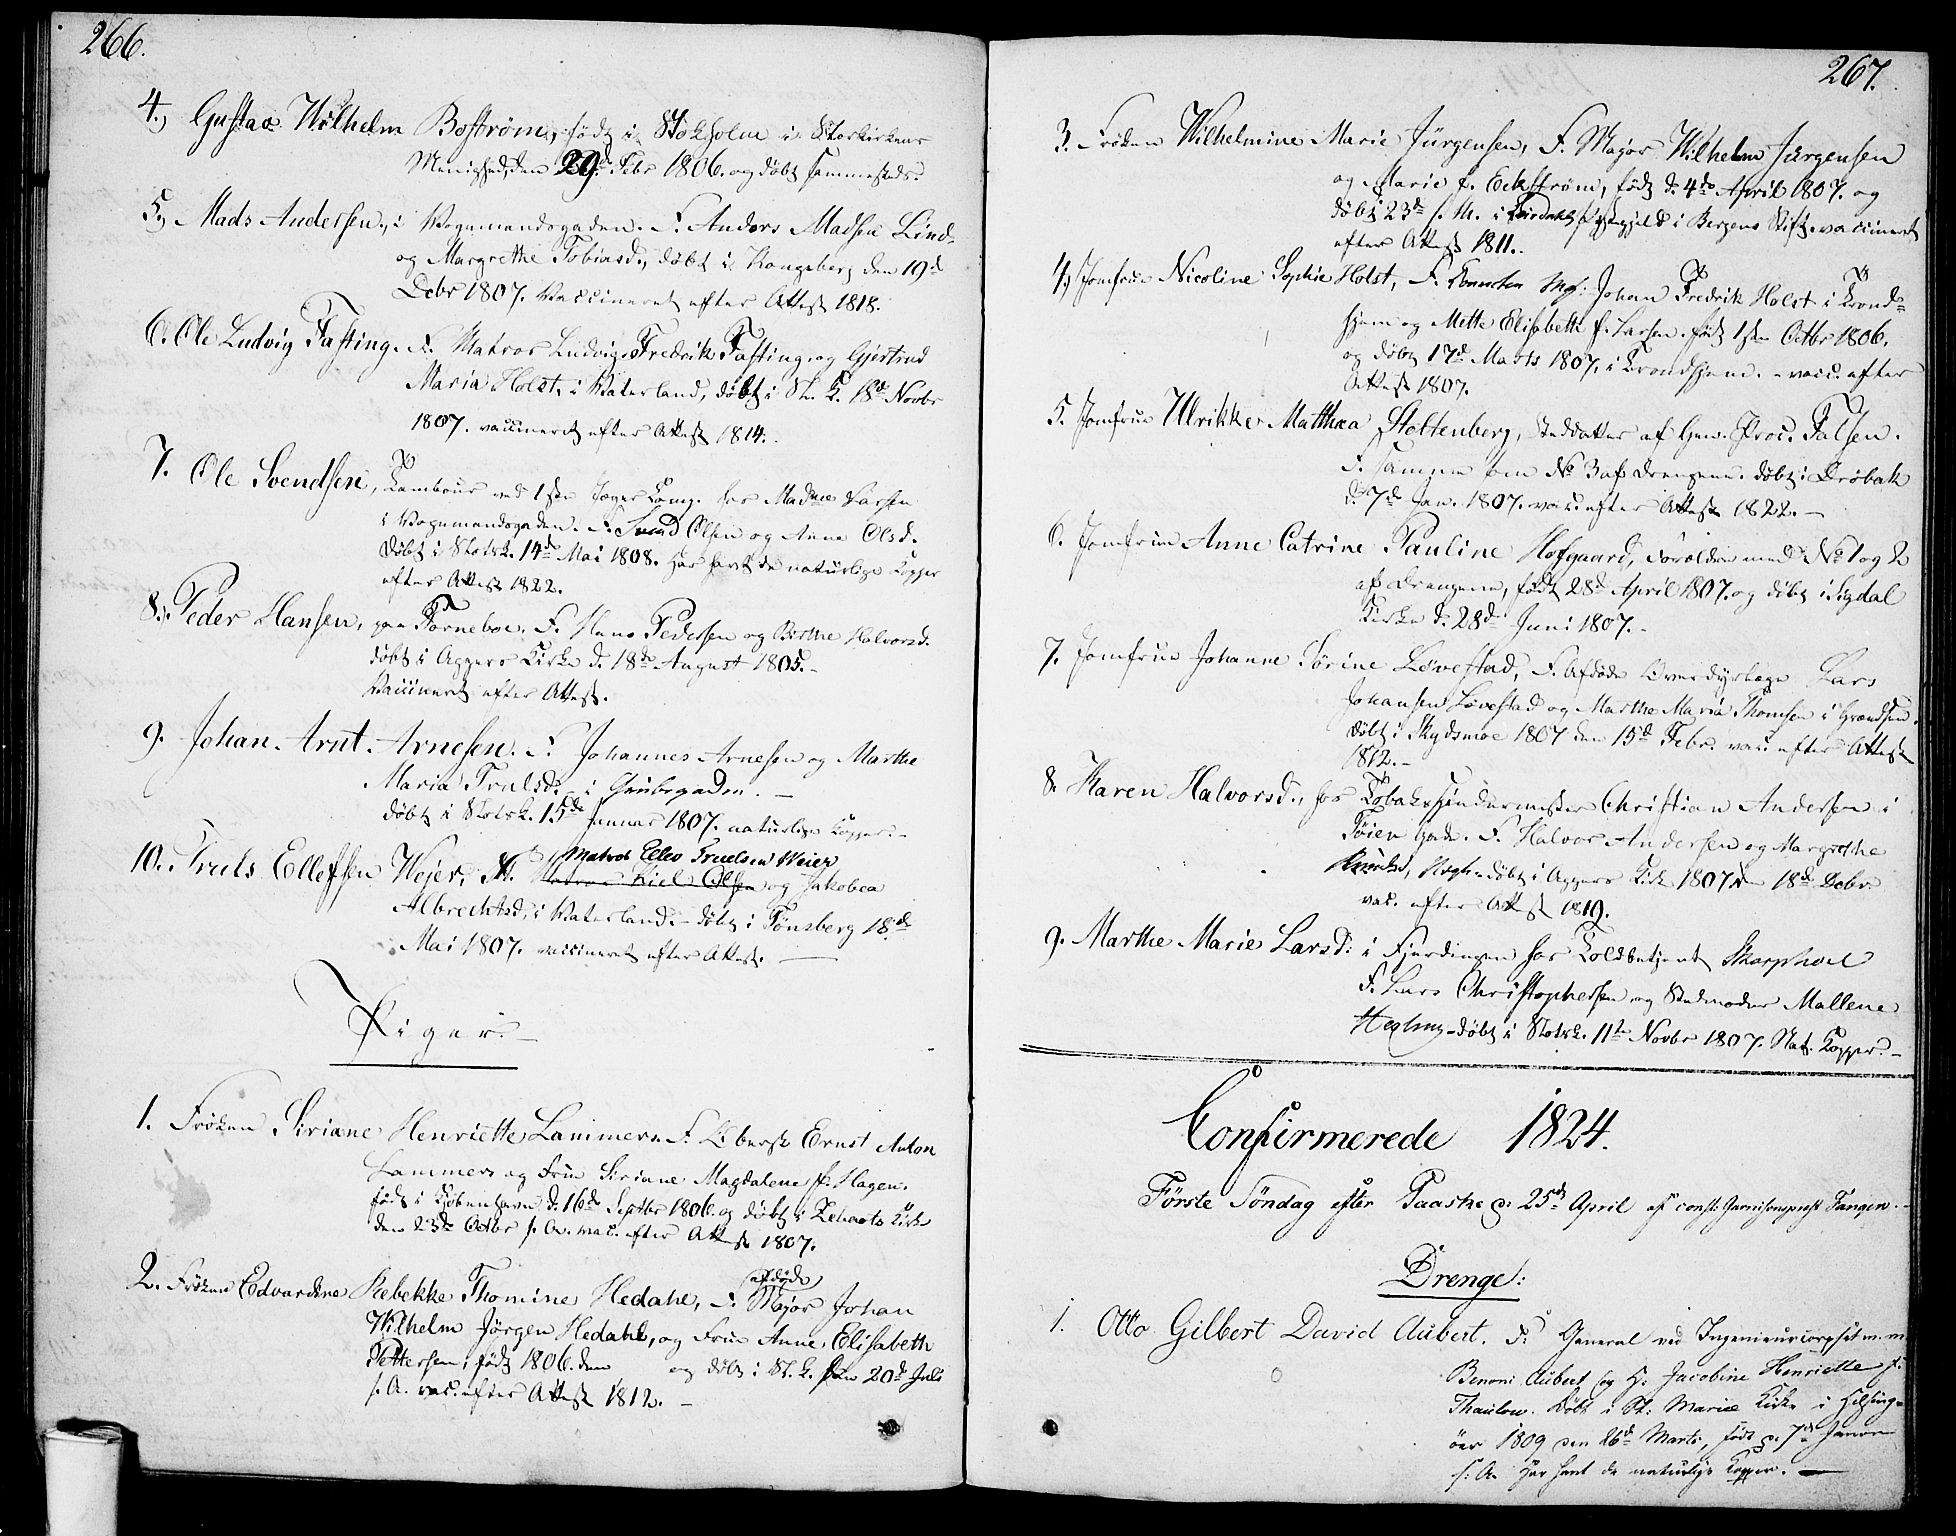 266.
4.) Gustav Wilhelm Boström, född i Stokholm i Storkirkens
Menighed, den 29de Febr 1806. og døbt sammesteds.
5.) Mads Andersen, i Vognmandsgaden. F. Anders Madsen Lind
og Margrethe Tobiasd., døbt i Kongsberg den 19d
Debr 1807. Vaccineret efter Attest 1818.
6. Ole Ludvig Fasting. F. Matros Ludvig Fredrik Fasting og Gjertrud
Maria Holst, i Vaterland, døbt i St. K. 18de Novbr
1807. vaccineret efter Attest 1814.
7. Ole Svendsen, Tambour ved 1ste Jæger Comp. hos Madme Larsen
i Vognmandsgaden. F. Svend Olsen og Anne Olsd.
døbt i Slotsk. 14de Mai 1808. Har havt de naturlige Kopper
efter Attest 1822.
8. Peder Hansen, paa Forneboe, F. Hans Pedersen og Birthe Halvorsd.
døbt i Aggers Kirke d. 18de August 1805.
Vaccineret efter Attest.
9. Johan Arnt Arnesen. F. Johannes Arnesen og Marthe
Maria Trulsd. i Grubegaden. —
døbt i Slotsk. 15de Januar 1807. naturlige Kopper.
Matros Ellev Truelsen Weier
10. Truls Ellefsen Wejer, F. Matros Kiel Olsen og Jakobea
Albrechtsd, i Vaterland. døbt i Tønsberg 18de
Mai 1807. vaccineret efter Attest. —
Piger.
1. Frøken Siriane Henriette Lammers F. Oberst Ernst Anton
Lammers og Frue Siriane Magdalene f. Hagen.
født i Kjøbenhavn d. 16de Septbr 1806. og døbt i Kirke
den 23de Octbr s. A. vac. efter Attest 1807.
afdøde
2. Frøken Edvardine Rebekke Thomine Hedahl, F. Major Johan
Wilhelm Jörgen Hedahl, og Frue Anne Elisabeth
Pettersen, født 1806. den og døbt i St. K. den 20de Juli
s. A. vac. efter Attest 1812. —
267.
3. Frøken Wilhelmine Marie Jürgensen, F. Major Wilhelm Jürgensen
og Marie f. Eckström, født d. 4de April 1807. og
døbt 23de s. M. i Præstegjeld i Bergens Stift. vaccineret
efter Attest 1811.
4.) Jomfrue Nicoline Sophie Holst, F. Johan Fredrik Holst i Trond-
hjem og Mette Elisabeth f. Larsen. født 1ste Octbr 1806.
og døbt 17de Marts 1807. i Trondhjem. vacc. efter
Attest 1807.
5. Jomfrue Ulrikke Matthea Stoltenberg, Steddatter af Gen. Proc. Falsen.
F. samme som No 3 af Drengene. døbt i Drøbak
d. 7de Jan. 1807. vac. efter Attest 1822. —
6. Jomfrue Anne Catrine Pauline Hofgaard, Forældre med No 1 og 2
af Drengene, født 28de April 1807. og døbt i Sigdal
Kirke d. 28de Juni 1807. -
7. Jomfrue Johanne Sørine Løvestad, F. Afdøde Overdyrlæge Lars
Johansen Løvestad og Marthe Maria Thomsen i Grændsen.
døbt i Skydsmoe 1807 den 15de Febr. vac. efter Attest
1812. -
8. Karen Halvorsd., hos Tobakspindermester Christian Andersen i
Tøien Gade. F. Halvor Andersen og Margrethe
døbt i Aggers Kirke 1807 den 18de Debr
vac. efter Attest 1819.
9. Marthe Marie Larsd: i Fjerdingen hos Toldbetjent Skarphoel
F. Lars Christophersen og Stedmoder Mallene
døbt i Slotsk. 11te Novbr 1807. Nat. Kopper. -
Confirmerede 1824.
Förste Söndag efter Paaske d. 25de April af const. Garnisonspræst Tangen.
Drenge:
1. Otto Gilbert David Aubert. F: General ved Ingenieurcorpset m. m.
Benoni Aubert og H: Jacobine Henriette f.
Thaulow. Döbt i St: Mariæ Kirke i Helsing-
öer 1809 den 26de Marts, født d. 7de Januar
s: A. Har havt de naturlige Kopper. —